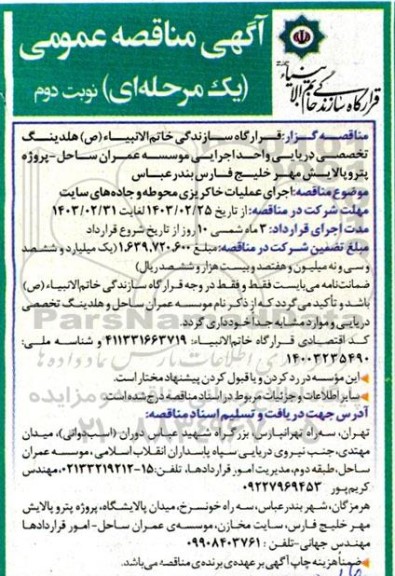 آگهی مناقصه عمومی
(یک مرحله‌ای) نوبت دوم
قرارگاه سازندگی خاتم الانبیاء
مناقصه گزار: قرارگاه سازندگی خاتم الانبیاء (ص) هلدینگ
تخصصی دریایی واحد اجرایی موسسه عمران ساحل-پروژه
پتروپالایش مهر خلیج فارس بندرعباس
موضوع مناقصه: اجرای عملیات خاکریزی محوطه و جاده‌های سایت
مهلت شرکت در مناقصه: از تاریخ ۱۴۰۳/۰۲/۲۵ لغایت ۱۴۰۳/۰۲/۳۱
مدت اجرای قرارداد: ۳ ماه شمسی ۱۰ روز از تاریخ شروع قرارداد
مبلغ تضمین شرکت در مناقصه: مبلغ ۱.۶۳۹.۷۲۰.۶۰۰ (یک میلیارد و ششصد
و سی و نه میلیون و هفتصد و بیست هزار و ششصد ریال)
ضمانت‌نامه می‌بایست فقط و فقط در وجه قرارگاه سازندگی خاتم الانبیاء (ص)
باشد و تأکید می‌گردد که از ذکر نام موسسه عمران ساحل و هلدینگ تخصصی
دریایی و موارد مشابه جدا خودداری گردد.
کد اقتصادی قرارگاه خاتم الانبیاء: ۴۱۱۳۳۱۶۶۳۷۱۹ و شناسه ملی:
۱۴۰۰۳۲۳۵۴۹۰
این مؤسسه در رد کردن و یا قبول کردن پیشنهاد مختار است.
سایر اطلاعات و جزئیات مربوط در اسناد مناقصه درج شده است.
آدرس جهت دریافت و تسلیم اسناد مناقصه:
تهران، سه‌راه تهرانپارس، بزرگراه شهید عباس دوران (اسب‌دوانی)، میدان
مهتدی، جنب نیروی دریایی سپاه پاسداران انقلاب اسلامی، موسسه عمران
ساحل، طبقه دوم، مدیریت امور قراردادها، تلفن: ۱۵-۰۲۱۳۳۲۱۹۲۱۲، مهندس
کریم‌پور ۰۹۲۲۷۹۶۹۴۵۳
هرمزگان، شهر بندرعباس، سه راه خونسرخ، میدان پالایشگاه، پروژه پترو پالایش
مهر خلیج فارس، سایت مخازن، موسسه‌ی عمران ساحل- امور قراردادها
مهندس جهانی-تلفن: ۰۹۹۰۸۴۰۳۷۶۱
ضمناً هزینه چاپ آگهی بر عهده‌ی برنده‌ی مناقصه می‌باشد.
ParsNamadData
۰۲۱-۸۸۳۴۹۶۷۰-۵